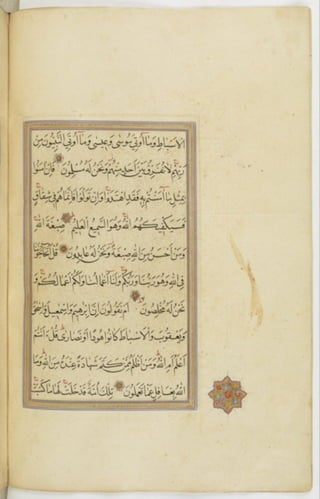 الْاَسْبَاطِ وَمَا اُوتِيَ مُوسٰى وَعِيسٰى وَمَا اُوتِيَ النَّبِيُّونَ مِنْ
رَبِّهِمْ لَا نُفَرِّقُ بَيْنَ اَحَدٍ مِنْهُمْ وَنَحْنُ لَهُ مُسْلِمُونَ فَاِنْ اٰمَنُوا
بِمِثْلِ مَا اٰمَنْتُمْ بِهِ فَقَدِ اهْتَدَوْا وَاِنْ تَوَلَّوْا فَاِنَّمَا هُمْ فِي شِقَاقٍ
فَسَيَكْفِيكَهُمُ اللهُ وَهُوَ السَّمِيعُ الْعَلِيمُ صِبْغَةَ اللهِ
وَمَنْ اَحْسَنُ مِنَ اللهِ صِبْغَةً وَنَحْنُ لَهُ عَابِدُونَ قُلْ اَتُحَاجُّونَنَا
فِي اللهِ وَهُوَ رَبُّنَا وَرَبُّكُمْ وَلَنَا اَعْمَالُنَا وَلَكُمْ اَعْمَالُكُمْ وَ
نَحْنُ لَهُ مُخْلِصُونَ اَمْ تَقُولُونَ اِنَّ اِبْرٰهِيمَ وَاِسْمٰعِيلَ وَاِسْحٰقَ
وَيَعْقُوبَ وَالْاَسْبَاطَ كَانُوا هُودًا اَوْ نَصَارٰى قُلْ ءَاَنْتُمْ
اَعْلَمُ اَمِ اللهُ وَمَنْ اَظْلَمُ مِمَّنْ كَتَمَ شَهَادَةً عِنْدَهُ مِنَ اللهِ وَمَا
اللهُ بِغَافِلٍ عَمَّا تَعْمَلُونَ تِلْكَ اُمَّةٌ قَدْ خَلَتْ لَهَا مَا كَسَبَتْ